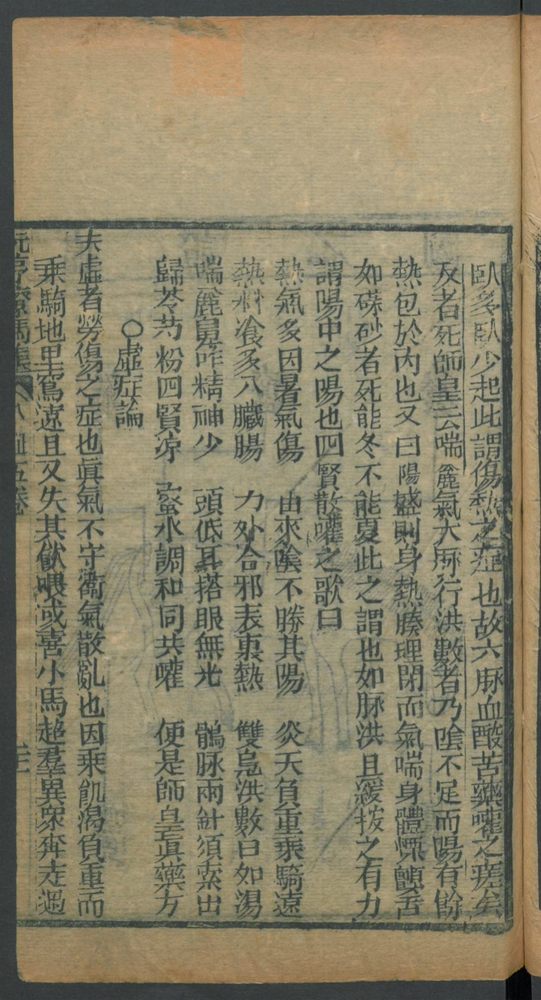 臥多臥少起此謂傷熱之症也故六脉血酸苦藥嚾之瘥矣
反者死師皇云喘麄氣大脉行洪數者乃陰不足而陽有餘
熱包於內也又曰陽盛則身熱腠理閉而氣喘身體慄顫舌
如磠砂者死能冬不能夏此之謂也如脉洪且緩拔之有力
謂陽中之陽也四賢散嚾之歌曰
熱氣多因暑氣傷 由來陰不勝其陽 炎天負重乘騎遠
熱料飡多入臟腸 力外合邪表裏熱 雙鳬洪數日如湯
喘麄鼻咋精神少 頭低耳搭眼無光 鶻脉兩針須索出
歸芩芍粉四賢凉 蜜水調和同共嚾 便是師皇眞藥方
○虛症論
夫虛者勞傷之症也眞氣不守衛氣散亂也因乘飢渴負重而
乘騎地里寫遠且又失其飲喂或喜小馬趂羣異衆奔走過
元亨療馬集 五卷 二